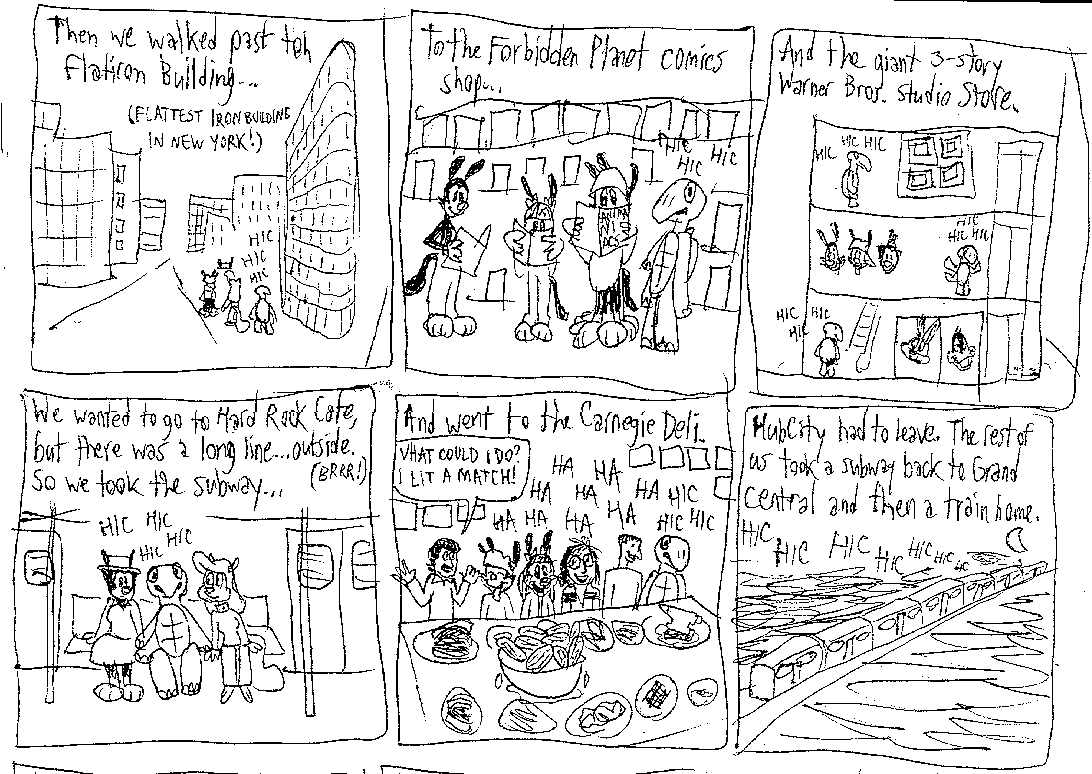 Then we walked past teh
Flatiron Building...
(FLATTEST IRON BUILDING
IN NEW YORK!)
HIC
HIC
HIC
To the Forbidden Planet comics
shop...
HIC
HIC
HIC
And the giant 3-story
Warner Bros. Studio Store.
HIC HIC HIC
HIC
HIC HIC
HIC HIC
HIC
We wanted to go to Hard Rock Cafe,
but there was a long line...outside.
(BRRR!)
So we took the subway...
HIC HIC
HIC HIC
And went to the Carnegie Deli.
WHAT COULD I DO?
I LIT A MATCH!
HA HA
HA HA HA HIC
HA HA HA HA HIC HIC
HubCity had to leave. The rest of
us took a subway back to Grand
Central and then a train home.
HIC HIC HIC HIC HIC HIC HIC